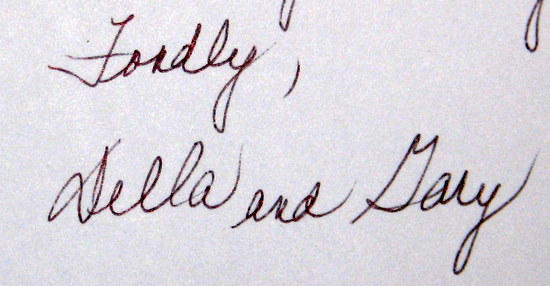 Fondly,
Della and Gary